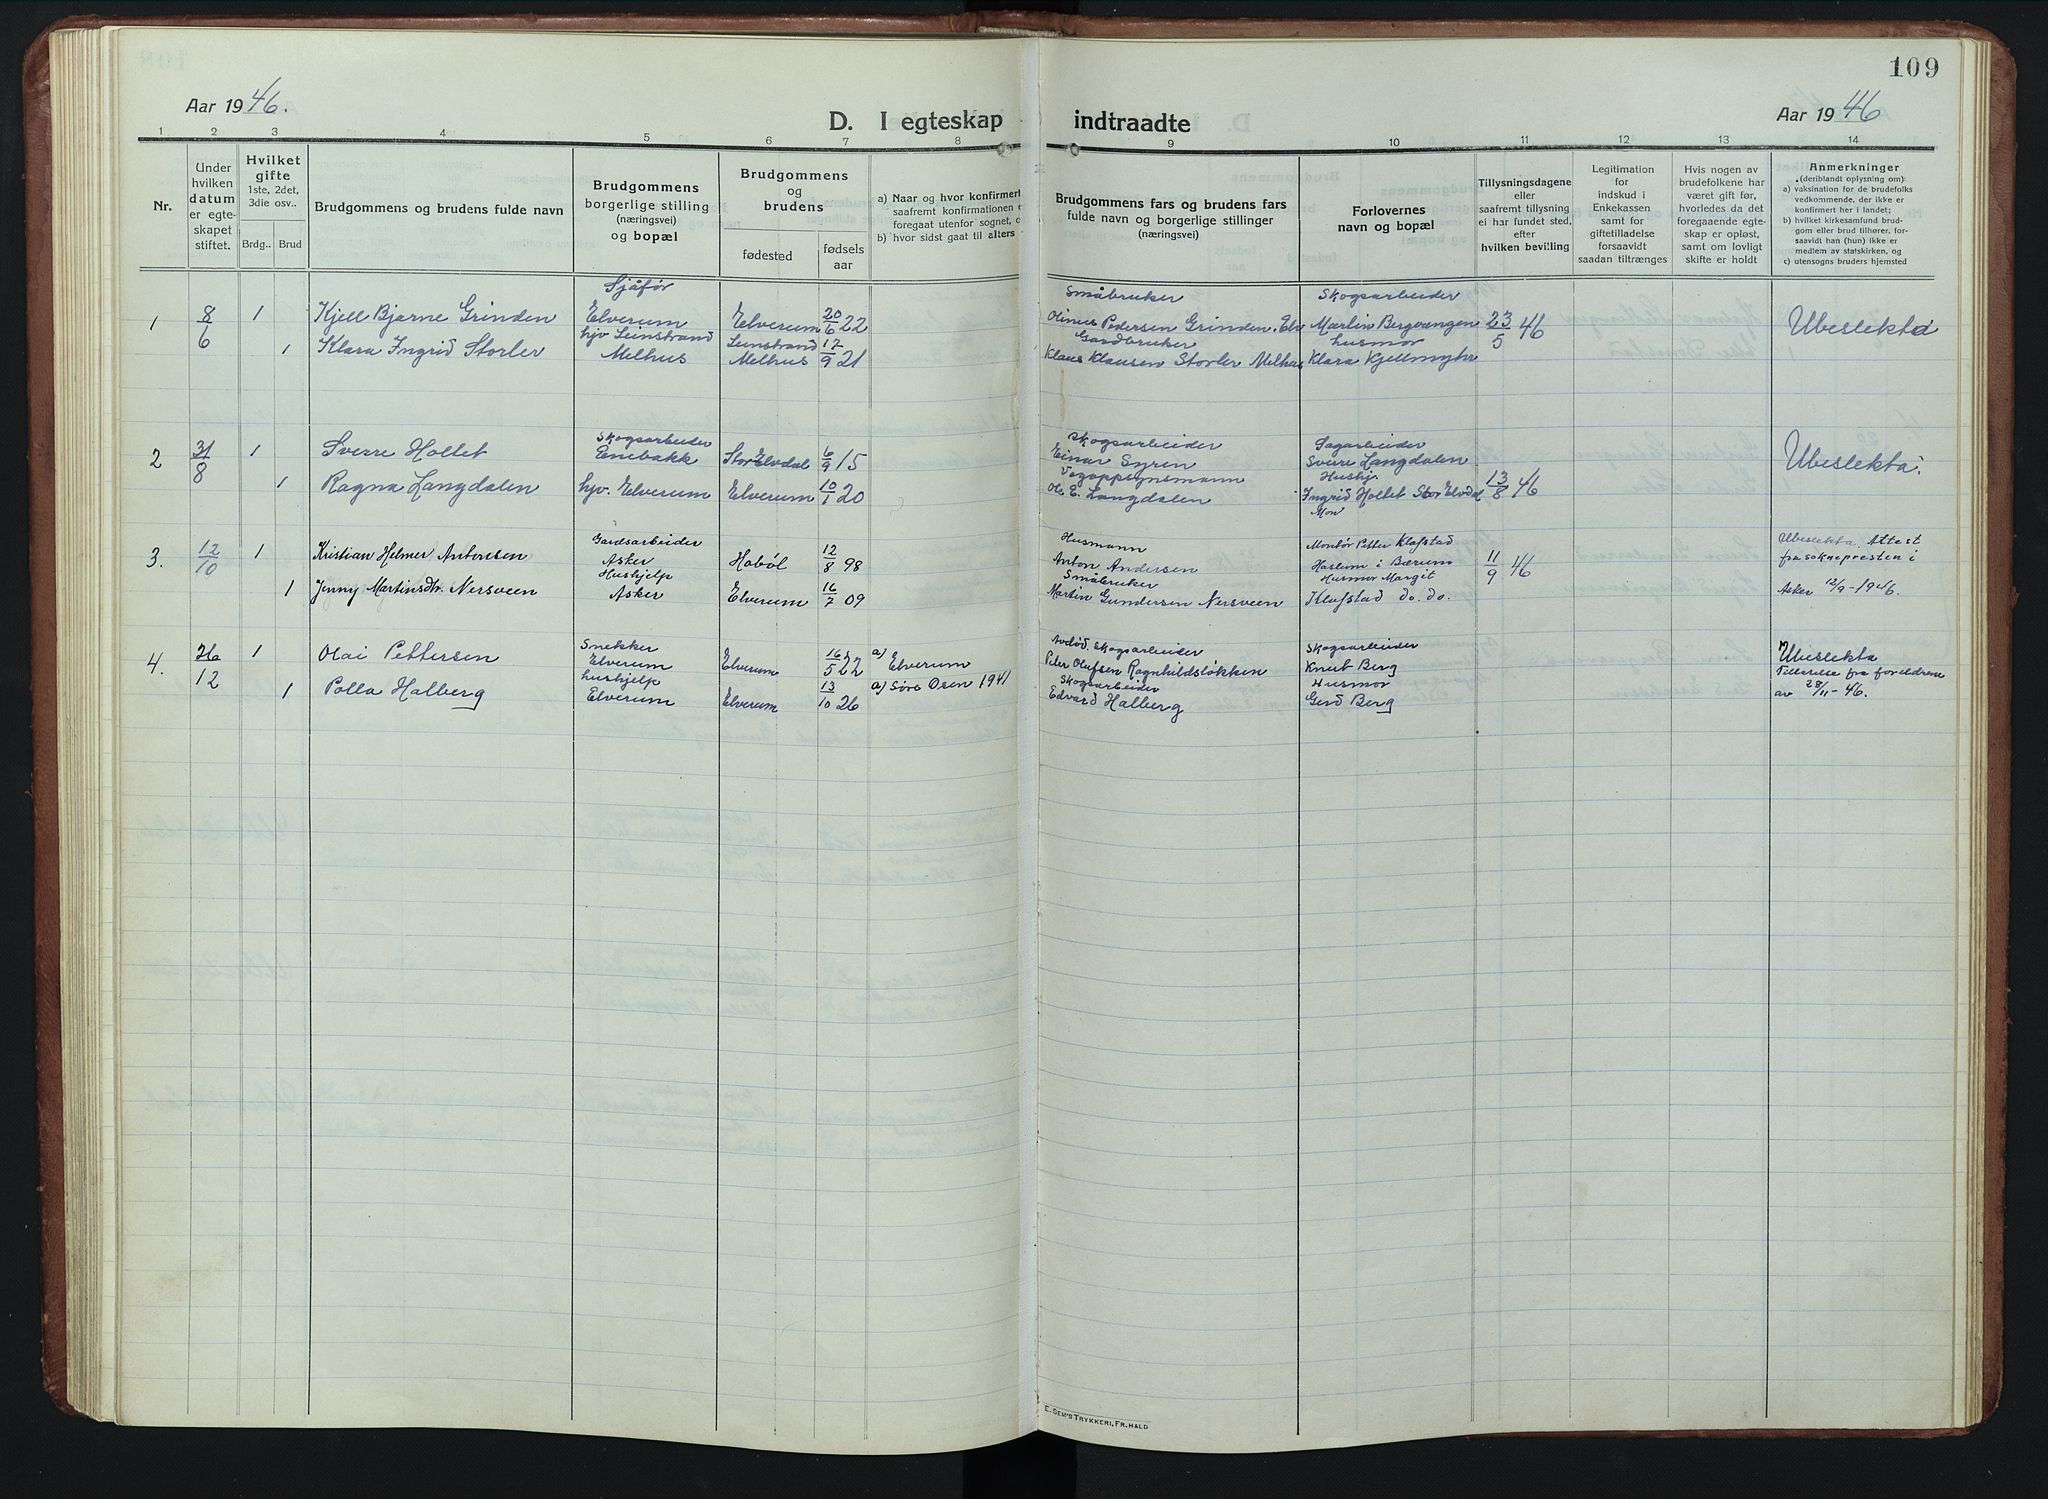 109
Aar 1946.
D. I egteskap indtraadte
Aar 1946
1 2 3 4 5 6 7 8 9 10 11 12 13 14
Nr.
Under hvilken datum er egteskapet stiftet.
Hvilket gifte 1ste, 2det, 3die osv..
Brdg.. Brud
Brudgommens og brudens fulde navn
Brudgommens borgerlige stilling (næringsvei) og bopæl
Brudgommens og brudens
fødested
fødsels aar
a) Naar og hvor konfirmert
saafremt konfirmationen e
foregaat utenfor sognet, o
b) hvor sidst gaat til alters
Brudgommens fars og brudens fars fulde navn og borgerlige stillinger (næringsvei)
Forlovernes navn og bopæl
Tillysningsdagene eller saafremt tillysning ei har fundet sted, efter hvilken bevilling
Legitimation for indskud i Enkekassen samt for giftetilladelse forsaavidt saadan tiltrænges
Hvis nogen av brudefolkene har været gift før, hvorledes da det foregaaende egteskap er opløst, samt om lovligt skifte er holdt
Anmerkninger
(deriblandt oplysning om):
a) vaksination for de brudefolks vedkommende, der ikke er konfirmert her i landet;
b) hvilket kirkesamfund brudgom eller brud tilhører, forsaavidt han (hun) ikke er medlem av statskirken, og
c) utensogns bruders hjemsted
1 8/6 1 Kjell Bjarne Grinden Sjåfør Elverum Elverum 20/6 22 Småbruker Olinus Pedersen Grinden. Elv Skogsarbeider Martin Bergvangen 23/5 46 Ubeslekta
1 Klara Ingrid Storler hjv Leinstrand Melhus Leinstrand Melhus 17/9 21 Gardbruker Klaus Klausen Storler Melhus husmor Klara Kjellmyhr
2 31/8 1 Sverre Holtet Skogsarbeider Enebakk Stor Elvdal 6/9 15 Skogsarbeider Einar Syren Sagarbeider Sverre Langdalen 13/8 46 Ubeslekta.
1 Ragna Langdalen hjv. Elverum Elverum 10/1 20 Vegoppsynsmann Ole E. Langdalen Hushj. Ingrid Holtet Stor Elvdal
3. 12/10 1 Kristian Helmer Antonsen Gardsarbeider Asker Hobøl 12/8 98 Husmann Anton Andersen Montør Petter Klafstad Haslum i Bærum 11/9 46 Ubeslekta. Attest fra soknepresten i Asker 12/9-1946.
1 Jenny Martinsdtr. Nersveen Hushjelp Asker Elverum 16/7 09 Småbruker Martin Gundersen Nersveen Husmor Margit Klafstad do. do.
4. 26/12 1 Olai Pettersen Snekker Elverum Elverum 16/5 22 a) Elverum Avdød. Skogsarbeider Peter Olufsen Ragnhildsløkken Skogsarbeider Knut Berg Ubeslekta
1 Polla Halberg hushjelp Elverum Elverum 13/10 26 a) Søre Osen 1941 Skogsarbeider Edvard Halberg Husmor Gerd Berg fra foreldrene av 28/11-46.
E. SEM'S TRYKKERI, FR. HALD